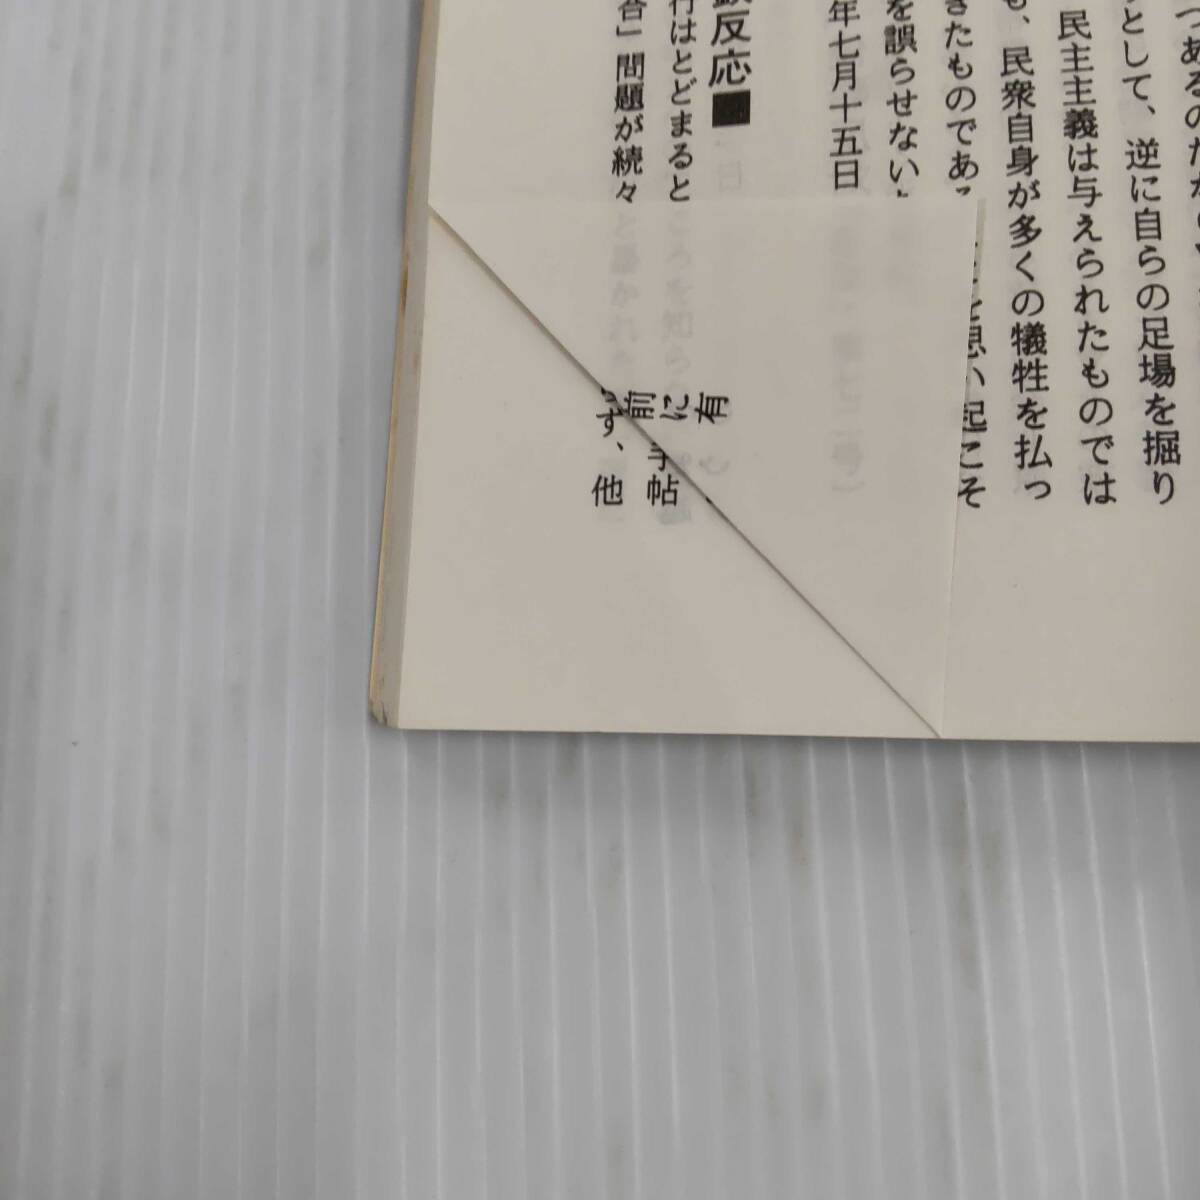 つあるのだが
りとして、逆に自らの足場を掘り
民主主義は与えられたものでは
も、民衆自身が多くの犠牲を払っ
きたものである
を思い起こそ
を誤らせない
年七月十五日
反応■
行はどどまると
合」問題が続々
有
に
前
手帖
ず、他